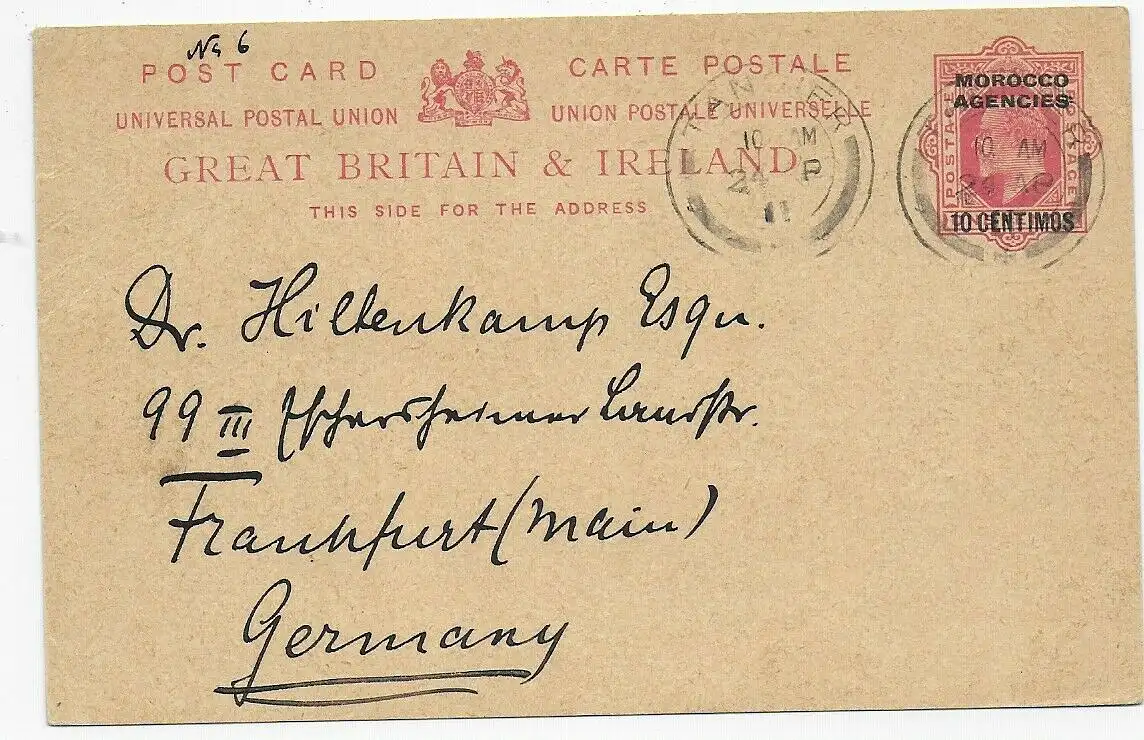 No 6
POST CARD
CARTE POSTALE
UNIVERSAL POSTAL UNION
UNION POSTALE UNIVERSELLE
GREAT BRITAIN & IRELAND
THIS SIDE FOR THE ADDRESS
TANGIER
10 AM
24 AP
11
MOROCCO
AGENCIES
POSTAGE
10 AM
24 AP
10 CENTIMOS
Dr. Hiltenkamp Esqu.
99 III Eschersheimer Landstr.
Frankfurt (Main)
Germany